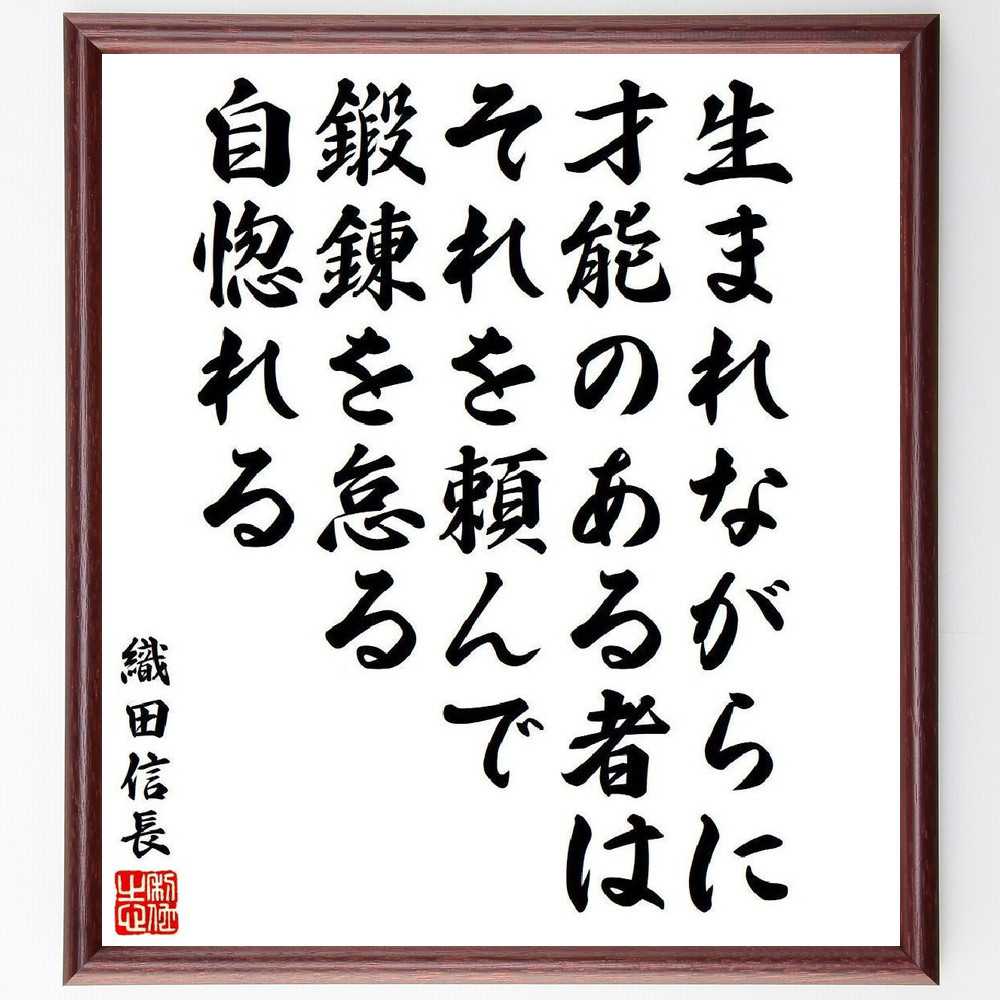 生まれながらに
才能のある者は
それを頼んで
鍛錬を怠る
自惚れる
織田信長